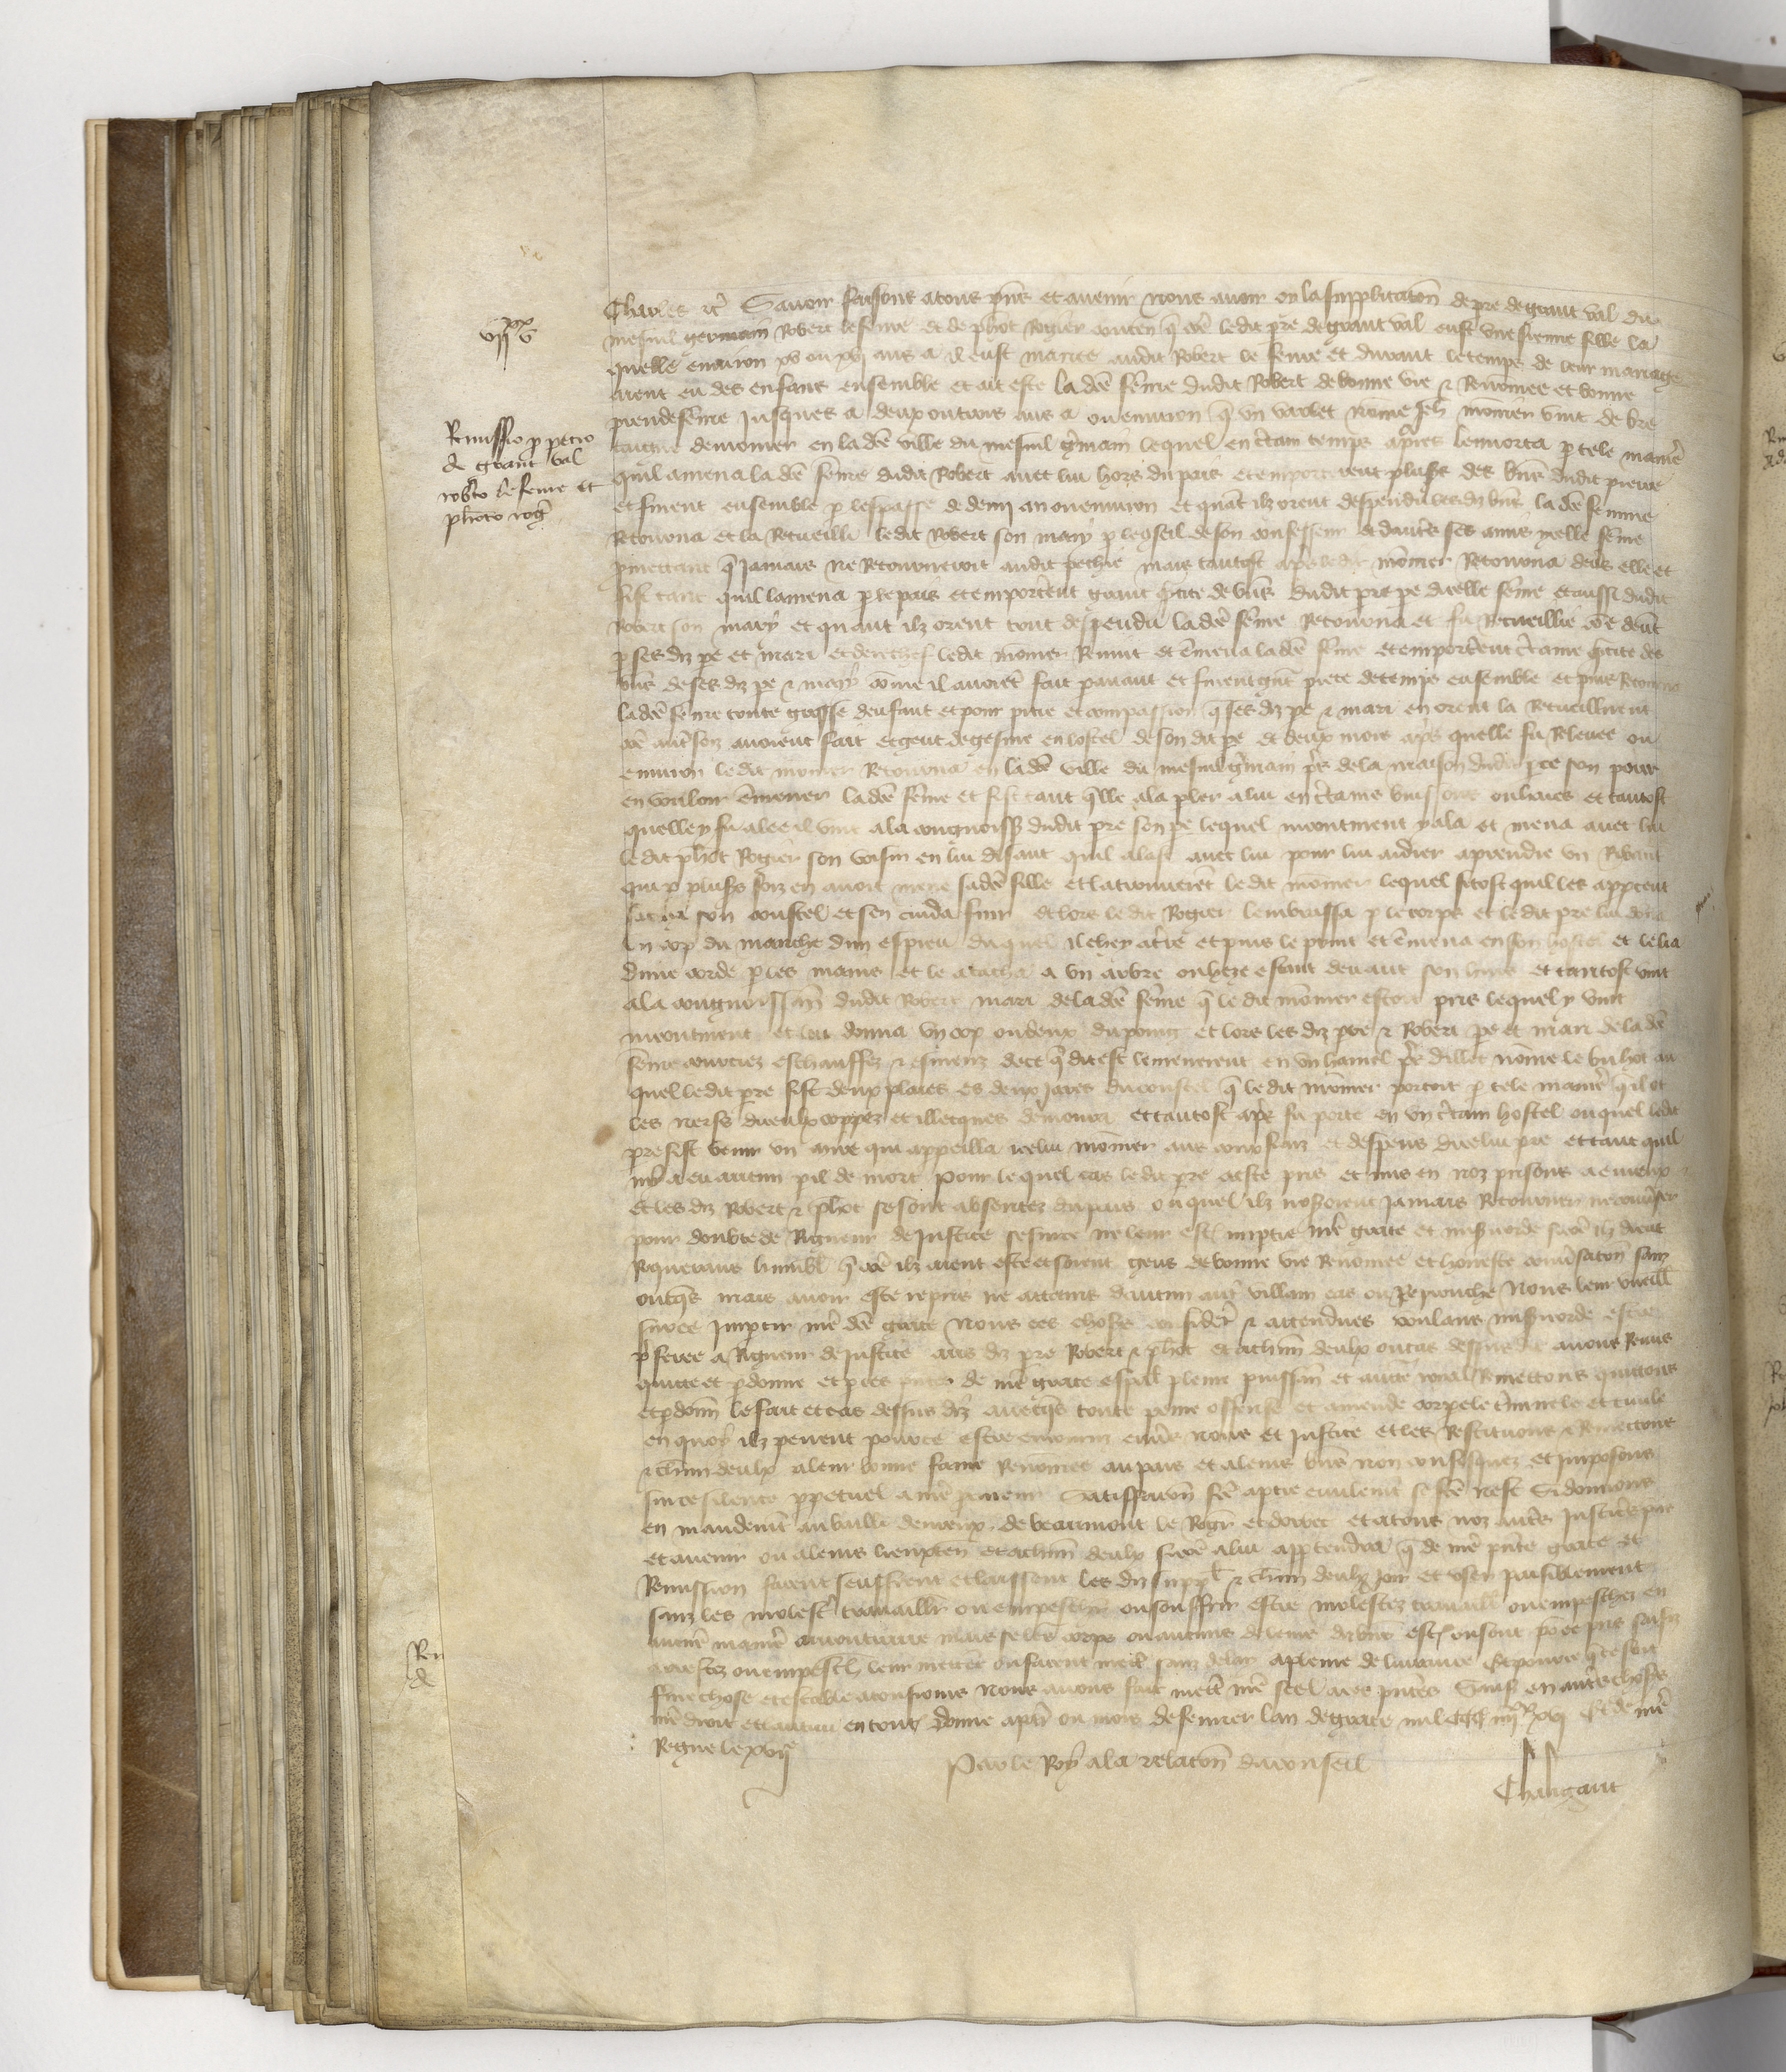 vii xx v
Remissio p petro
de grant val
robto le feme et
photo rog
Charles etc Savoir faisons a tous pns et avenir nous avoir oy la supplicacon de pre de grant val du
mesnil germain Robert le femre et de phot Rogier conten q coe ledit pre de grant val eust une sienne fille la
quelle environ xv ou xvj ans a il eust mariee audit Robert le femre et durant le temps de leur mariage
aient eu des enfans ensemble et ait este la dce feme dudit Robert de bonne vie et Renommee et bonne
preudefeme Jusques a deux ou trois ans a ou environ q un varlet nome Jeh momer vint de bre
taigne demorer en la dce ville du mesnil gmain lequel en ctain temps apres lenorta p tele manie
quil amena la dce feme dudit Robert avec lui hors du pais et emporterent plusrs des biens dudit pierre
et furent ensemble p lespasse de demi an ou environ et quant ilz orent despendu lesdiz biens la dce femme
Retourna et la Recueilli ledit Robert son mary p le conseil de son confesseur et dautres ses amis ycelle feme
pmettant q Jamais ne Retourneroit audit pechie mais tantost aps ledit momer Retourna devs elle et
fist tant quil lamena p le pais et emporterent grant qtite de biens dudit pre pe dicelle feme et aussi dudit
Robert son mary et quant ilz orent tout despendu la dce feme Retourna et fu Recueillie coe devt
p ses diz pe et mari et derechef ledit momer Revint et emena la dce feme et emporterent ctaine qtite des
biens de ses diz pe et mary come il avoiet fait pavant et furent gnt piece de temps ensemble et puis Retourna
la dce feme toute grosse denfant et pour pitie et compassion q ses diz pe et mari en orent la Recueillirent
coe autresfoiz avoient fait et geut de gesine en lostel de son dit pe et deux mois aps quelle fu Relevee ou
environ ledit momer Retourna en la dce ville du mesnil gmain pres de la maison dudit pre son pour
en vouloir emener la dce feme et fist tant qlle ala pler a lui en ctains buissons ou haies et tantost
quelle y fu alee il vint a la congnoiss dudit pre son pe lequel incontinent y ala et mena avec lui
ledit phot Rogier son voisin en lui disant quil alast avec lui pour lui aidier a prendre un Ribaut
qui p plusrs foiz en avoit mene sa dce fille et la trouverent ledit momer lequel si tost quil les appceut
sacha son coustel et sen cuida fuir et lors ledit Rogier lembrassa p le corps et ledit pre lui dona
un cop du manche dun espieu duquel il chey a tre et puis le print et emena en son hostel et le lia
dune corde p les mains et le atacha a un arbre ou haye estant devant son huis et tantost vint
a la congnoissan dudit Robert mari de la dce feme q ledit momer estoit pris lequel y vint
incontinent et lui donna un cop ou deux du poing et lors les diz pre et Robert pe et mari de la dce
feme courciez eschauffez et esmeuz de ce q dit est lemenerent en un hamel pres dillec nome le buhot au
quel ledit pre fist deux plaies es deux Jares du coustel q ledit momer portoit p tele manie q il ot
les nerfs diceulx coppez et illecques demoura et tantost apres fu porte en un ctain hostel ouquel ledit
pre fist venir un mire qui appeilla icelui momer aus coux fraiz et despens dicelui pre et tant quil
ny a eu aucun pil de mort pour lequel cas ledit pre a este pris et mis en noz prisons a evreux
et les diz Robert et phot se sont absentez du pais ouquel ilz noseroient Jamais Retourner ne converser
pour doubte de Rigueur de Justice se sur ce ne leur est imptie nre grace et misicorde sicoe ilz dient
Requerans humbl q coe ilz aient este et soient gens de bonne vie Renomee et honeste conversacon sanz
onqs mais avoir este repris ne attains daucun autre villain cas ou Reprouche Nous leur vueill
sur ce Impetir nre dce grace Nous ces choses considers et attendues voulans misicorde estre
pferee a Rigueur de Justice aus diz pre Robert et phot et a chun deulx ou cas dessus dit avons Remis
quitte et pdonne et p ces pntes de nre grace espal pleine puissan et auctite roial Remettons quittons
et pdonn le fait et cas dessus diz avecqs toute peine offense et amende corpele criminele et civile
en quoy ilz pevent pource estre encouruz envers nous et Justice et les Restituons et Remettons
et chun deulx a leur bonne fame Renomee au pais et a leurs biens non confisquez et imposons
sur ce silence ppetuel a nre procureur Satisfacon fce a ptie civilemt se fce nest Si donnons
en mandemt au bailli devreux de beaumont le Rogr et dorbec et a tous noz autres Justiciers pns
et avenir ou a leurs lieuxten et a chun deulx sicoe a lui apptendra q de nre pnte grace et
Remission facent seuffrent et laissent les diz suppl et chun deulx Joir et user paisiblement
sanz les molester travaillier ou empeschier ou souffrir estre molestez travaill ou empeschez en
aucune maniere au contraire mais se leurs corps ou aucuns de leurs diz biens est ou sont pource pris saisiz
arrestez ou empeschez leur mettre ou facent mett sanz delay a pleine delivrance Et pource q ce soit
ferme chose et estable a tousjours Nous avons fait mett nre seel a ces pntes Sauf en autres choses
nre droit et lautrui en toutes Donne a paris ou mois de fevrier lan de grace mil ccc iiij xx xvj Et de nre
Regne le xvij e
Par le Roy a la relacon du conseil
Chaligaut